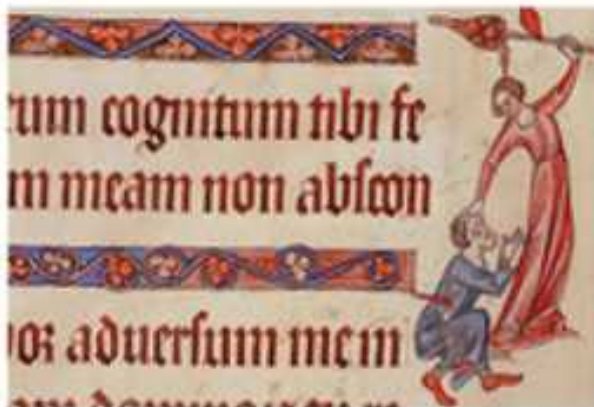 um cognitum tibi fe
m meam non abſcon
oꝛ aduerſum me in